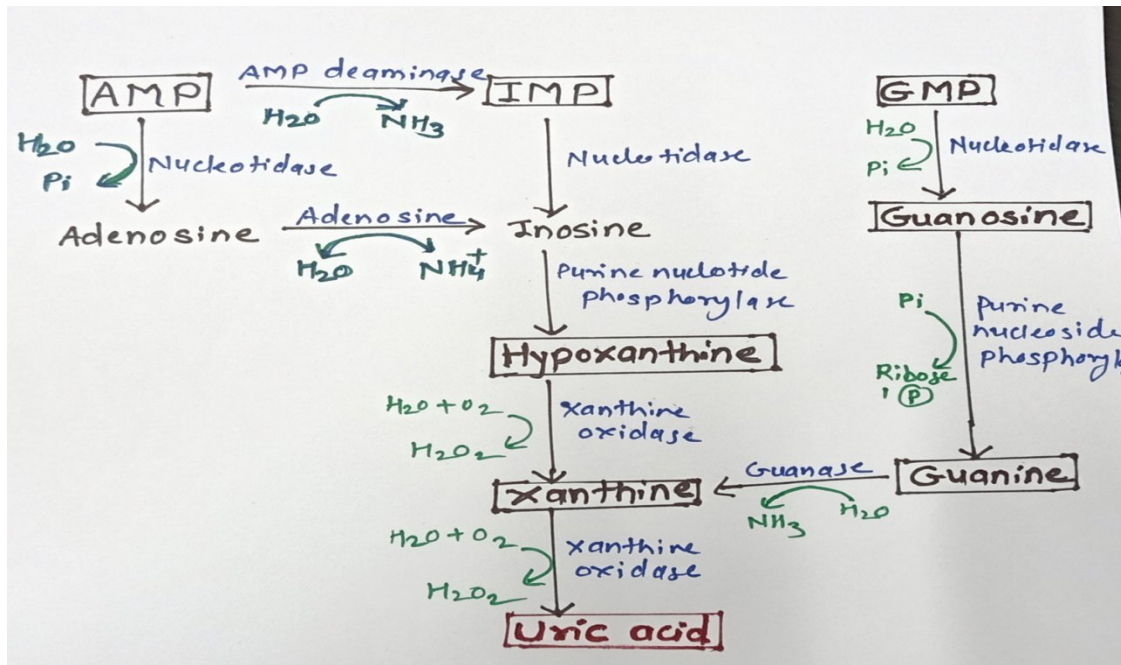 AMP
AMP deaminase
H2O
NH3
IMP
GMP
H2O
Pi
Nucleotidase
Nucleotidase
H2O
Pi
Nucleotidase
Adenosine
Adenosine
H2O
NH4+
Inosine
Guanosine
Purine nuclotide
phosphorylase
Pi
Ribose
1 P
Purine
nucleoside
phosphoryl
Hypoxanthine
H2O + O2
H2O2
Xanthine
oxidase
Xanthine
Guanase
NH3
H2O
Guanine
H2O + O2
H2O2
Xanthine
oxidase
Uric acid